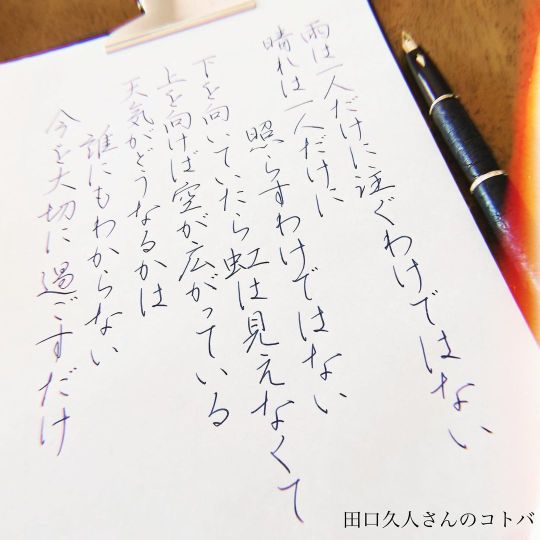 雨は一人だけに注ぐわけではない
晴れは一人だけに
照らすわけではない
下を向いていたら虹は見えなくて
上を向けば空が広がっている
天気がどうなるかは
誰にもわからない
今を大切に過ごすだけ
田口久人さんのコトバ